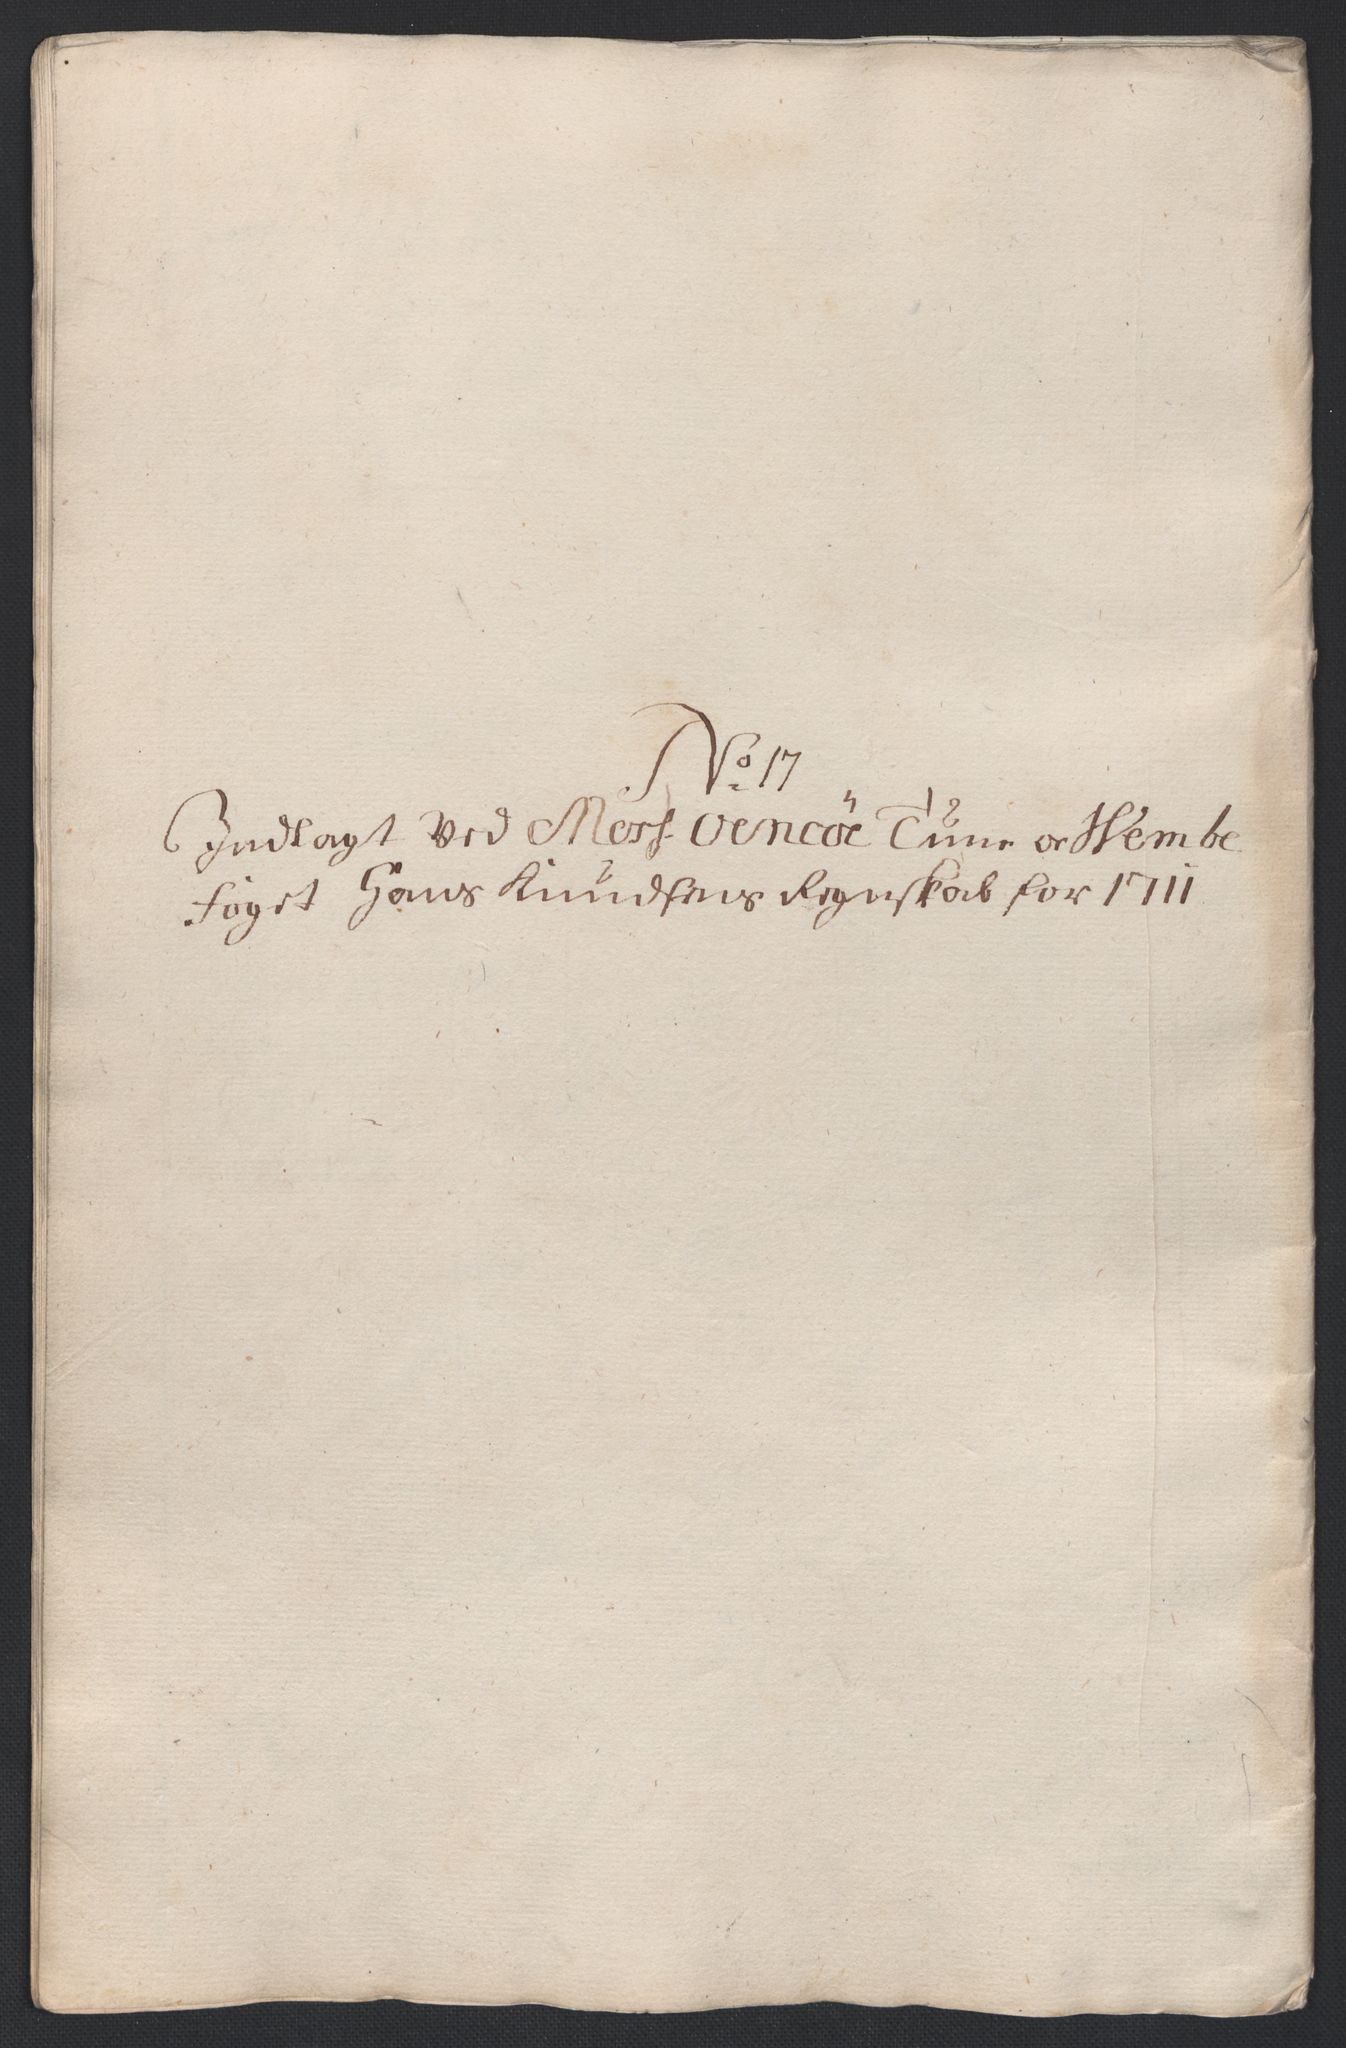 No 17
Indlagt Ved Moss Oensöe Tune oc Wembe
foget Hans Knudsens Regnskab for 1711